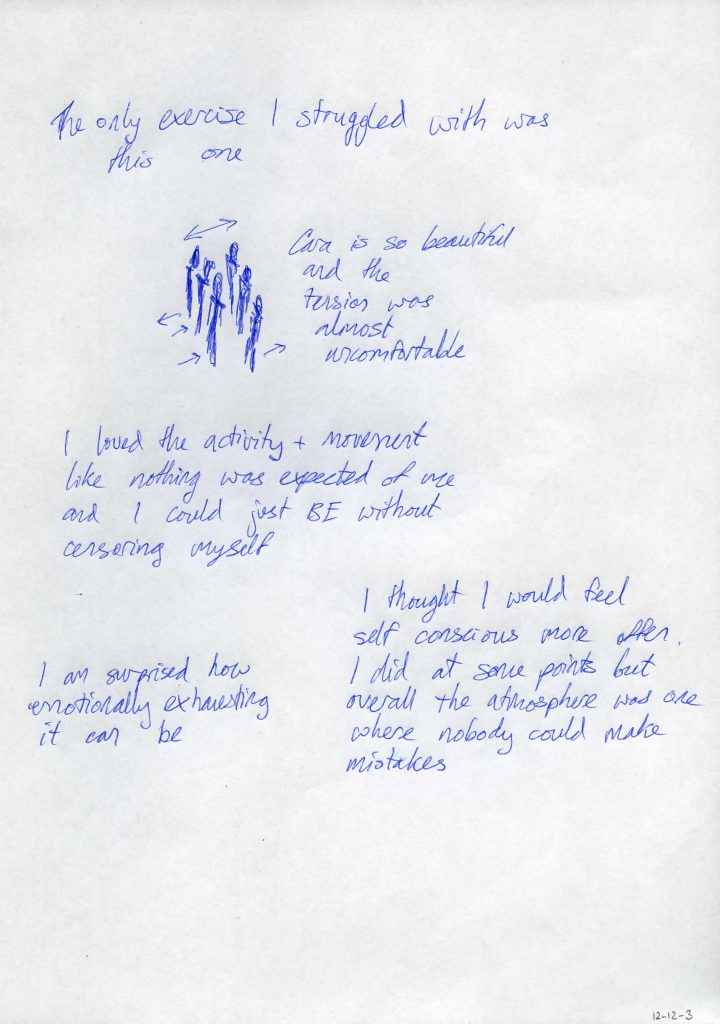 The only exercise I struggled with was
this one
Cara is so beautiful
and the
tension was
almost
uncomfortable
I loved the activity + movement
like nothing was expected of me
and I could just BE without
censoring myself
I thought I would feel
self conscious more often.
I did at some points but
overall the atmosphere was one
where nobody could make
mistakes
I am surprised how
emotionally exhausting
it can be
12-12-3